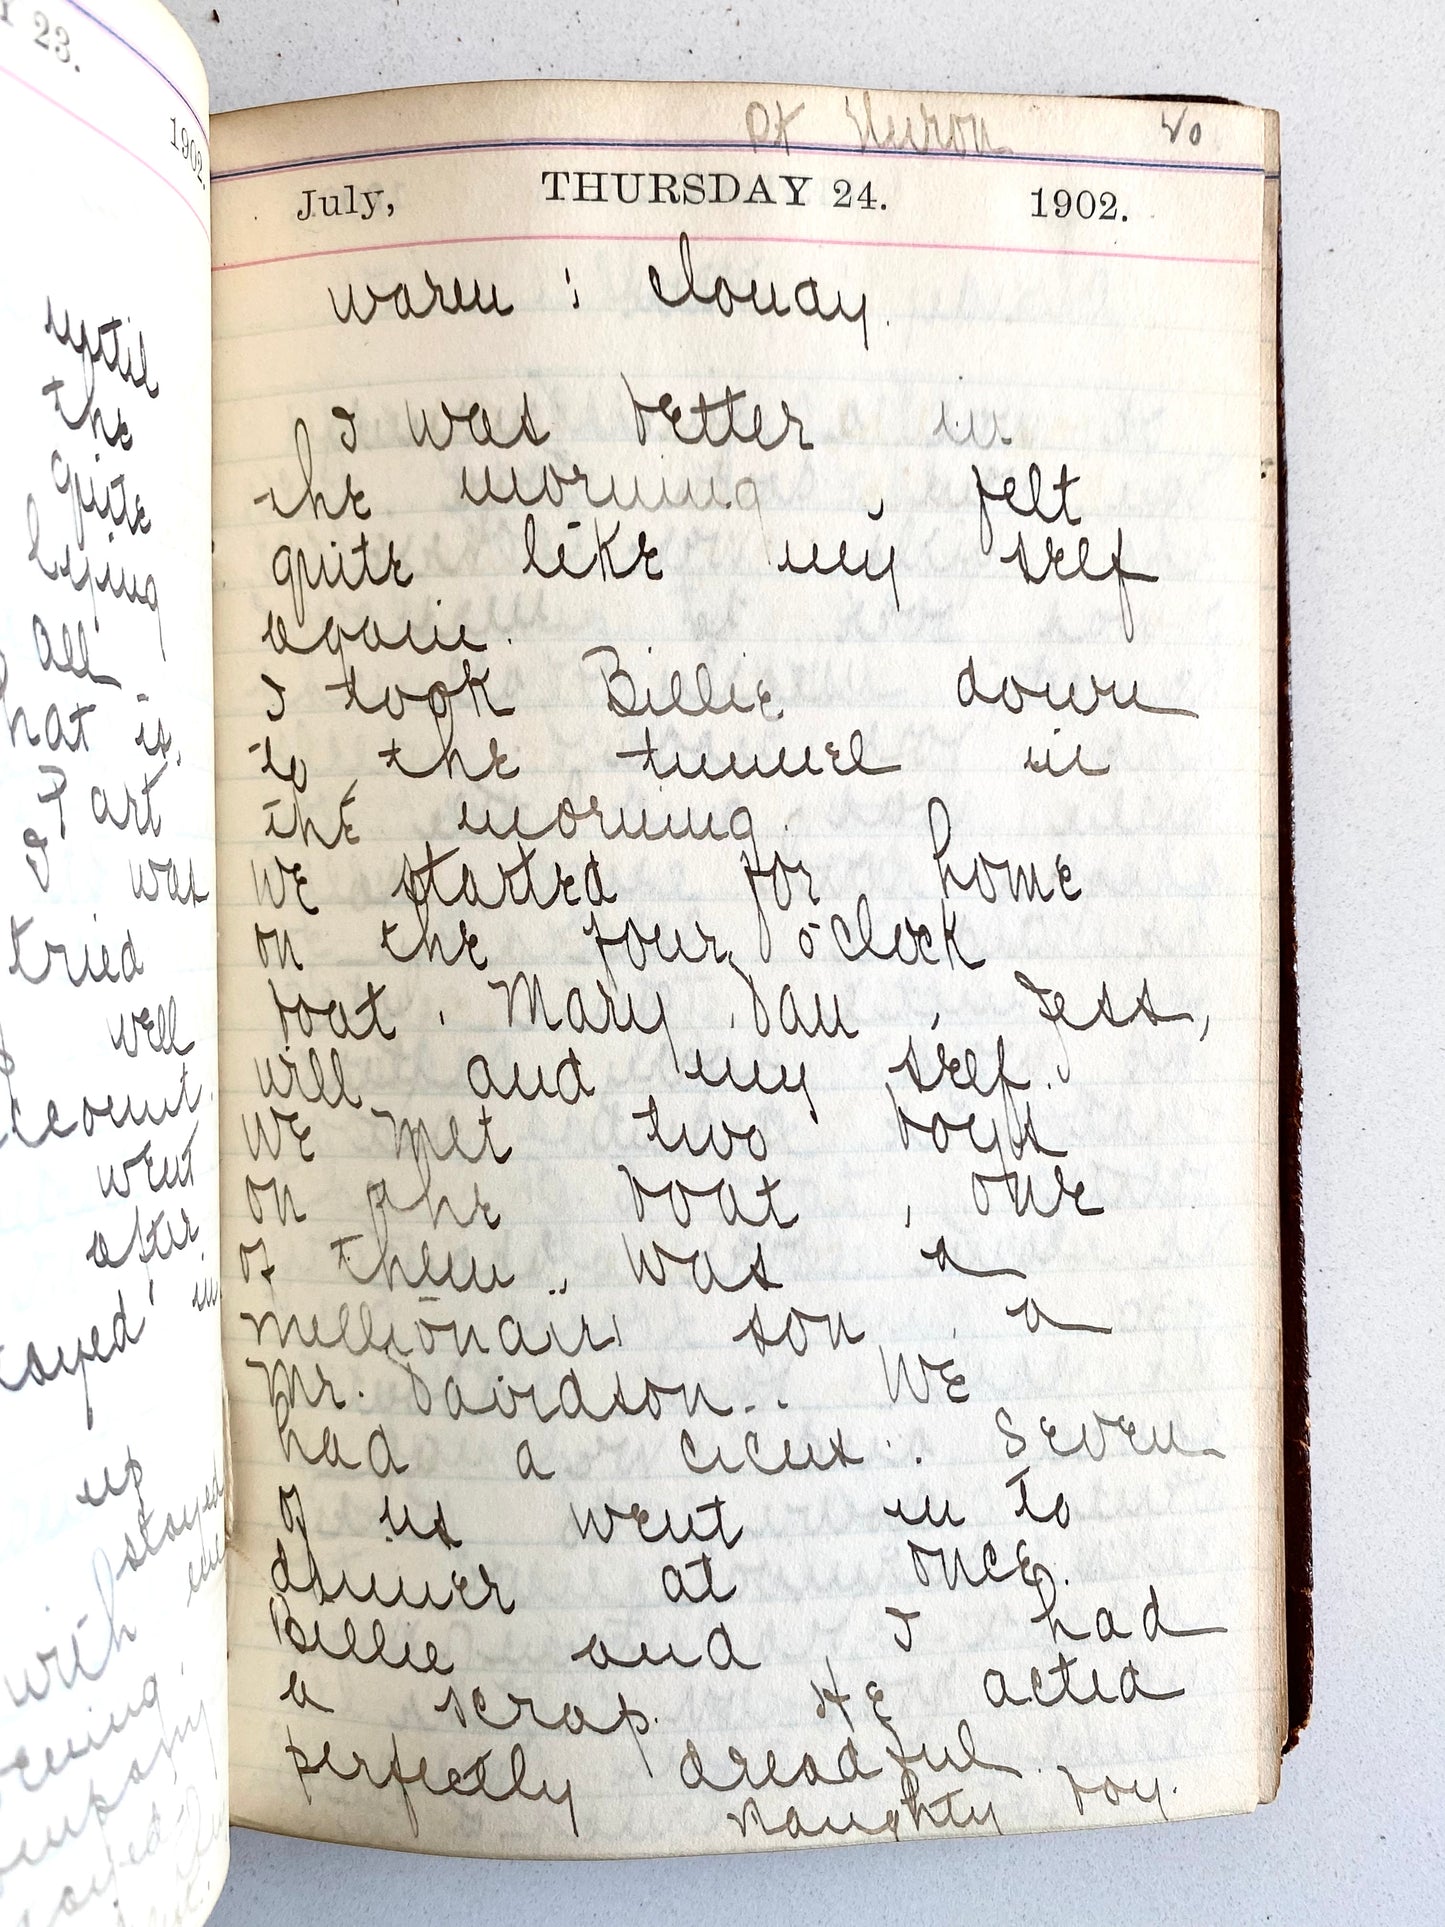 Y 23.
1902.
until
the
quite
lying
all
hat is,
I art
I was
tried
well
ccount.
went
after
tayed in
up
stayed
with
ening
ompany
Pt Huron 20
July, THURSDAY 24. 1902.
warm ; cloudy.
I was better in
the morning, felt
quite like my self
again.
I took Billie down
to the tunnel in
the morning.
We started for home
on the four o'clock
boat, Mary, Dau, Jess,
Will and my self.
We met two boys
on the boat, one
of them, was a
millionair son, a
Mr. Davidson.. We
had a cicus. Seven
of us went in to
dinner at once.
Billie and I had
a scrap. He acted
perfectly dreadful.
Naughty boy.